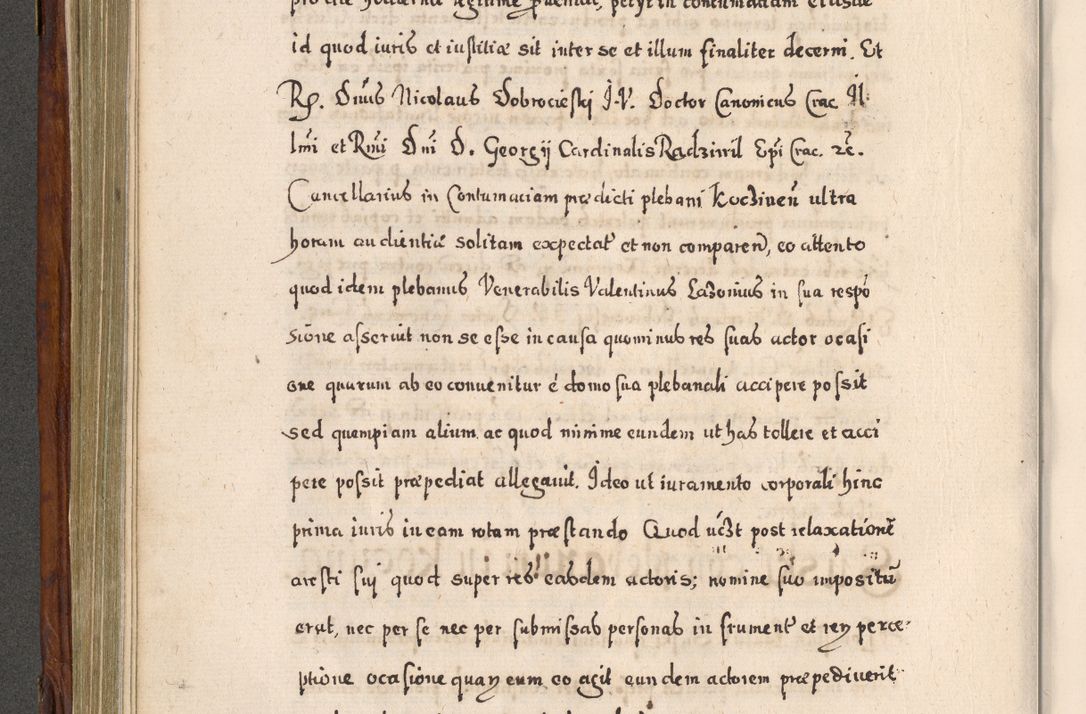 id quod iuris et iustitiæ sit inter se et illum finaliter decerni. Et
Rꝑ. Dnus Nicolaus Dobrocieskj J.V. Doctor Canonicus Crac. Il
lmi et Rmi Dni D. Georgij Cardinalis Radziwil Epi Crac. &c.
Cancellarius in Contumaciam prædicti plebani Koczineñ ultra
horam audientiæ solitam expectat et non comparen, eo attento
quod idem plebanus Venerabilis Valentinus Lazonius in sua respo
sione asseruit non se esse in causa quominus res suas actor ocasi
one quarum ab eo conuenitur è domo sua plebanali accipere possit
sed quempiam alium. ac quod minime eundem ut has tollere et acci
pere possit præpediat allegauit. Ideo ut iuramento corporali hinc
prima iuris in eam rotam præstando Quod post relaxatione
aresti sui quod super res easdem actoris; nomine suo impositu
erat, nec per se nec per submissas personas in frument et rey perce
ptione ocasione quay eum eo agit eundem actorem præpediuerit